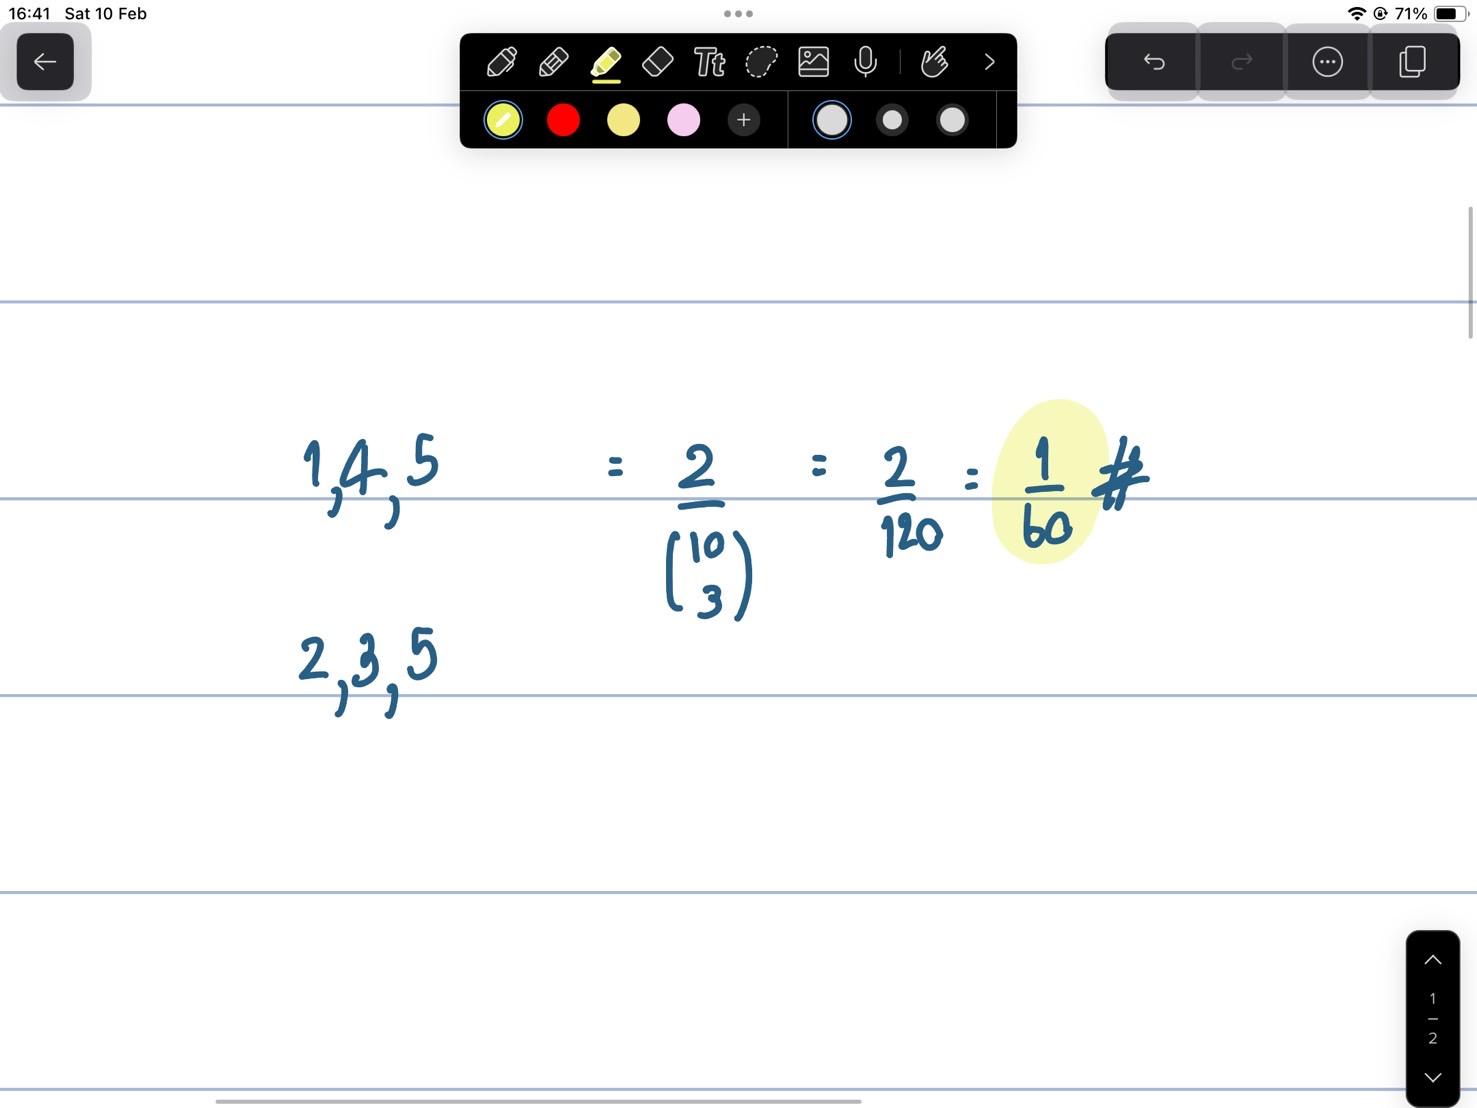 16:41 Sat 10 Feb
71%
Tt
1,4,5 = 2/(10 3) = 2/120 = 1/60 #
2,3,5
1
2